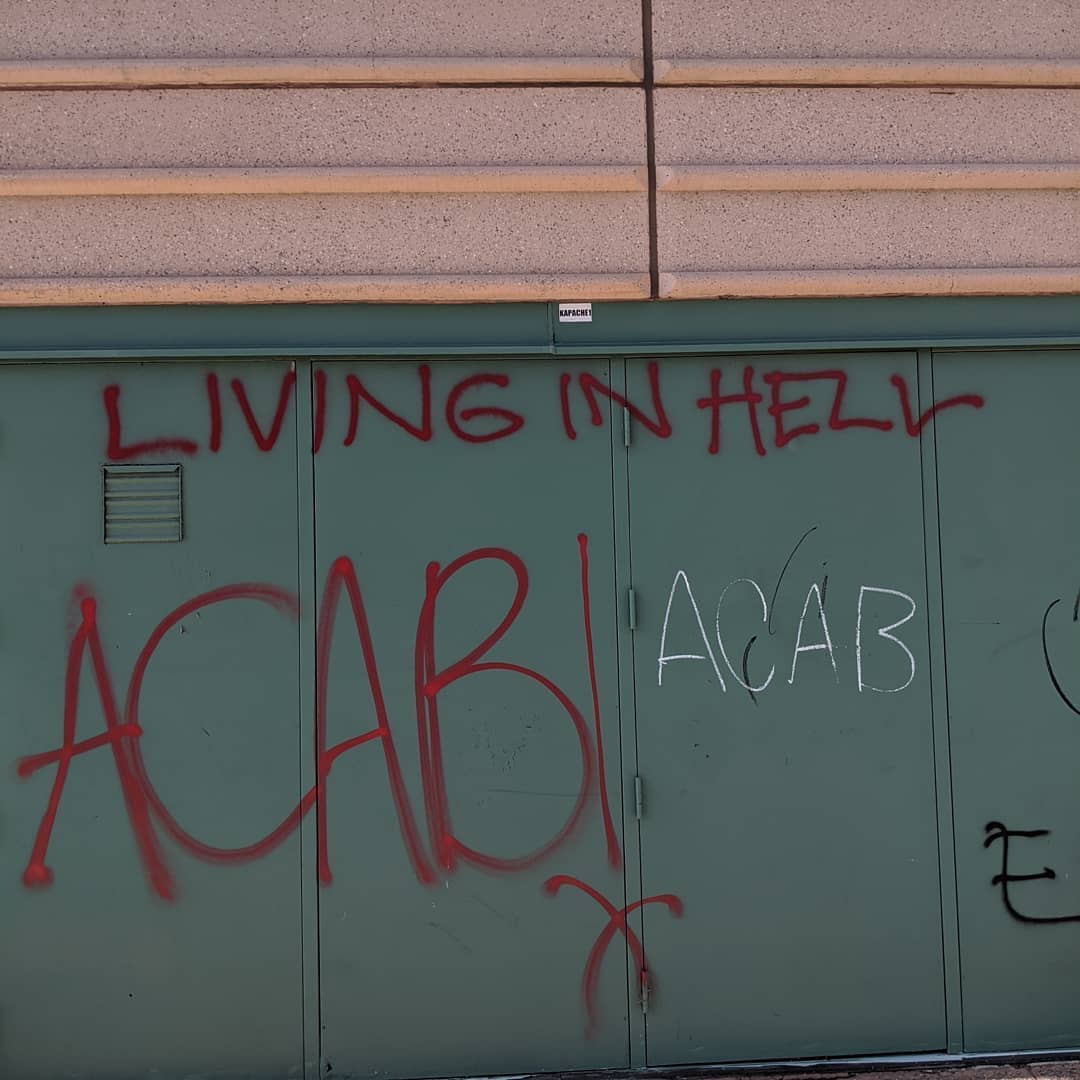 KAPACHE1
LIVING IN HELL
ACAB!
ACAB
E